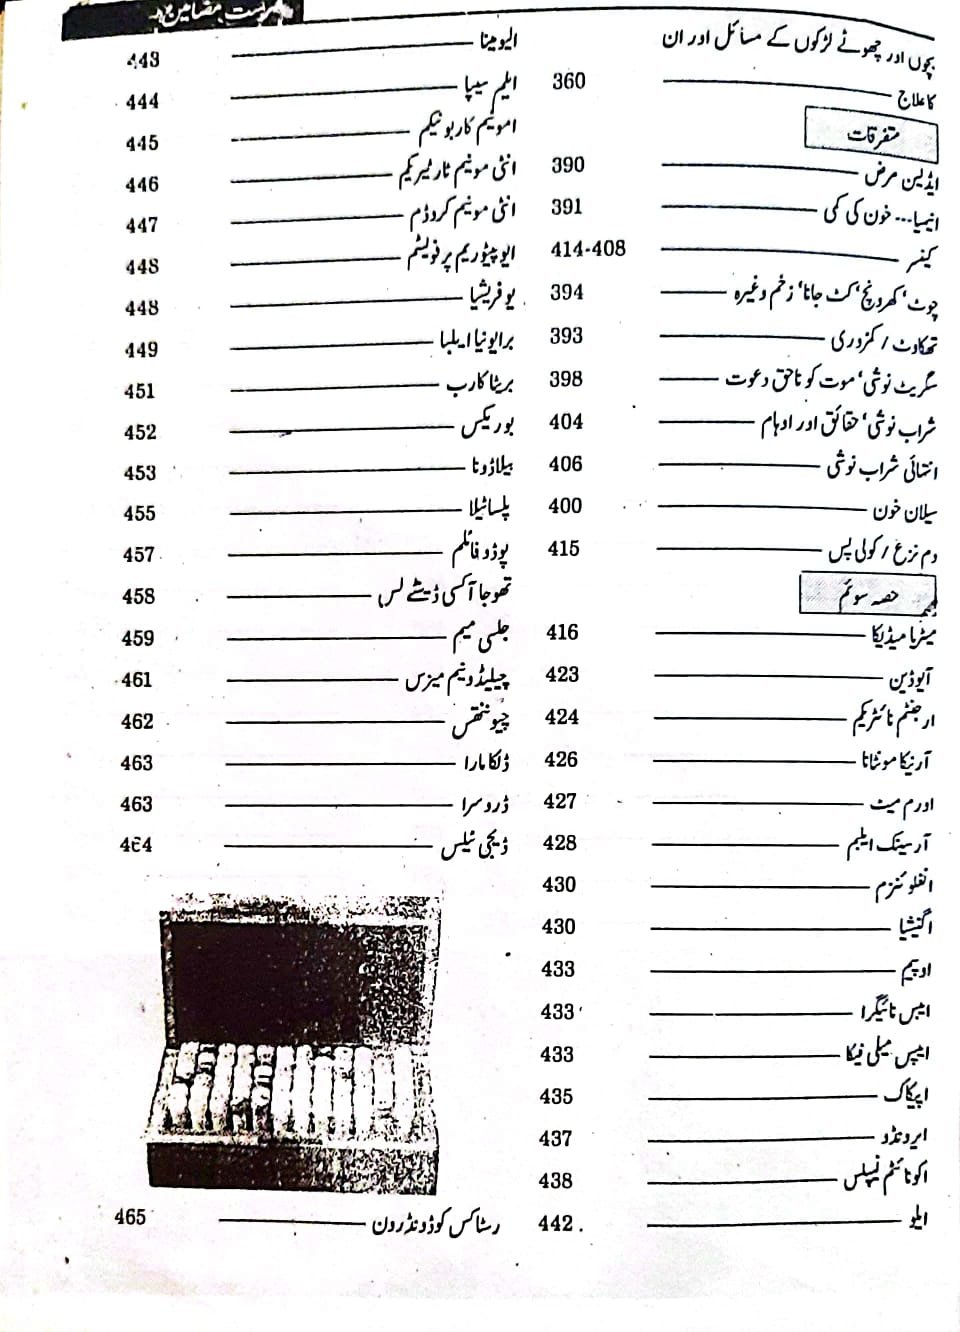 فہرست مضامین
بچوں اور چھوٹے لڑکوں کے مسائل اور ان
کا علاج 360
متفرقات
ایڈیسن مرض 390
انیمیا... خون کی کمی 391
کینسر 414-408
چوٹ، کھرونچ، کٹ جانا، زخم وغیرہ 394
تھکاوٹ / کمزوری 393
سگریٹ نوشی، موت کو ناحق دعوت 398
شراب نوشی، حقائق اور اوہام 404
انتہائی شراب نوشی 406
سیلان خون 400
دم نزع / کولی پس 415
حصہ سوئم
میٹریا میڈیکا 416
آیوڈین 423
ارجنٹم نائٹریکم 424
آرنیکا مونٹانا 426
اورم میٹ 427
آرسینک ایلبم 428
انفلوئنزم 430
اگنیشیا 430
اوپیم 433
ایبس نائیگرا 433
ایپس میلی فیکا 433
اپیکاک 435
ایرونڈو 437
اکونائٹم نیپلس 438
ایلو 442
الیومینا 443
ایلیم سیپا 444
امونیم کاربونیکم 445
انٹی مونیم ٹارٹیریکم 446
انٹی مونیم کروڈم 447
ایوپیٹوریم پرفولیٹم 448
یوفریشیا 448
برایونیا ایلبا 449
بریٹا کارب 451
بوریکس 452
بیلاڈونا 453
پلساٹیلا 455
پوڈوفائلم 457
تھوجا آکسی ڈینٹے لس 458
جلسی میم 459
چیلیڈونیم میزس 461
چیوننتھس 462
ڈلکامارا 463
ڈروسرا 463
ڈیجی ٹیلس 464
رسٹاکس کوڈونڈرون 465